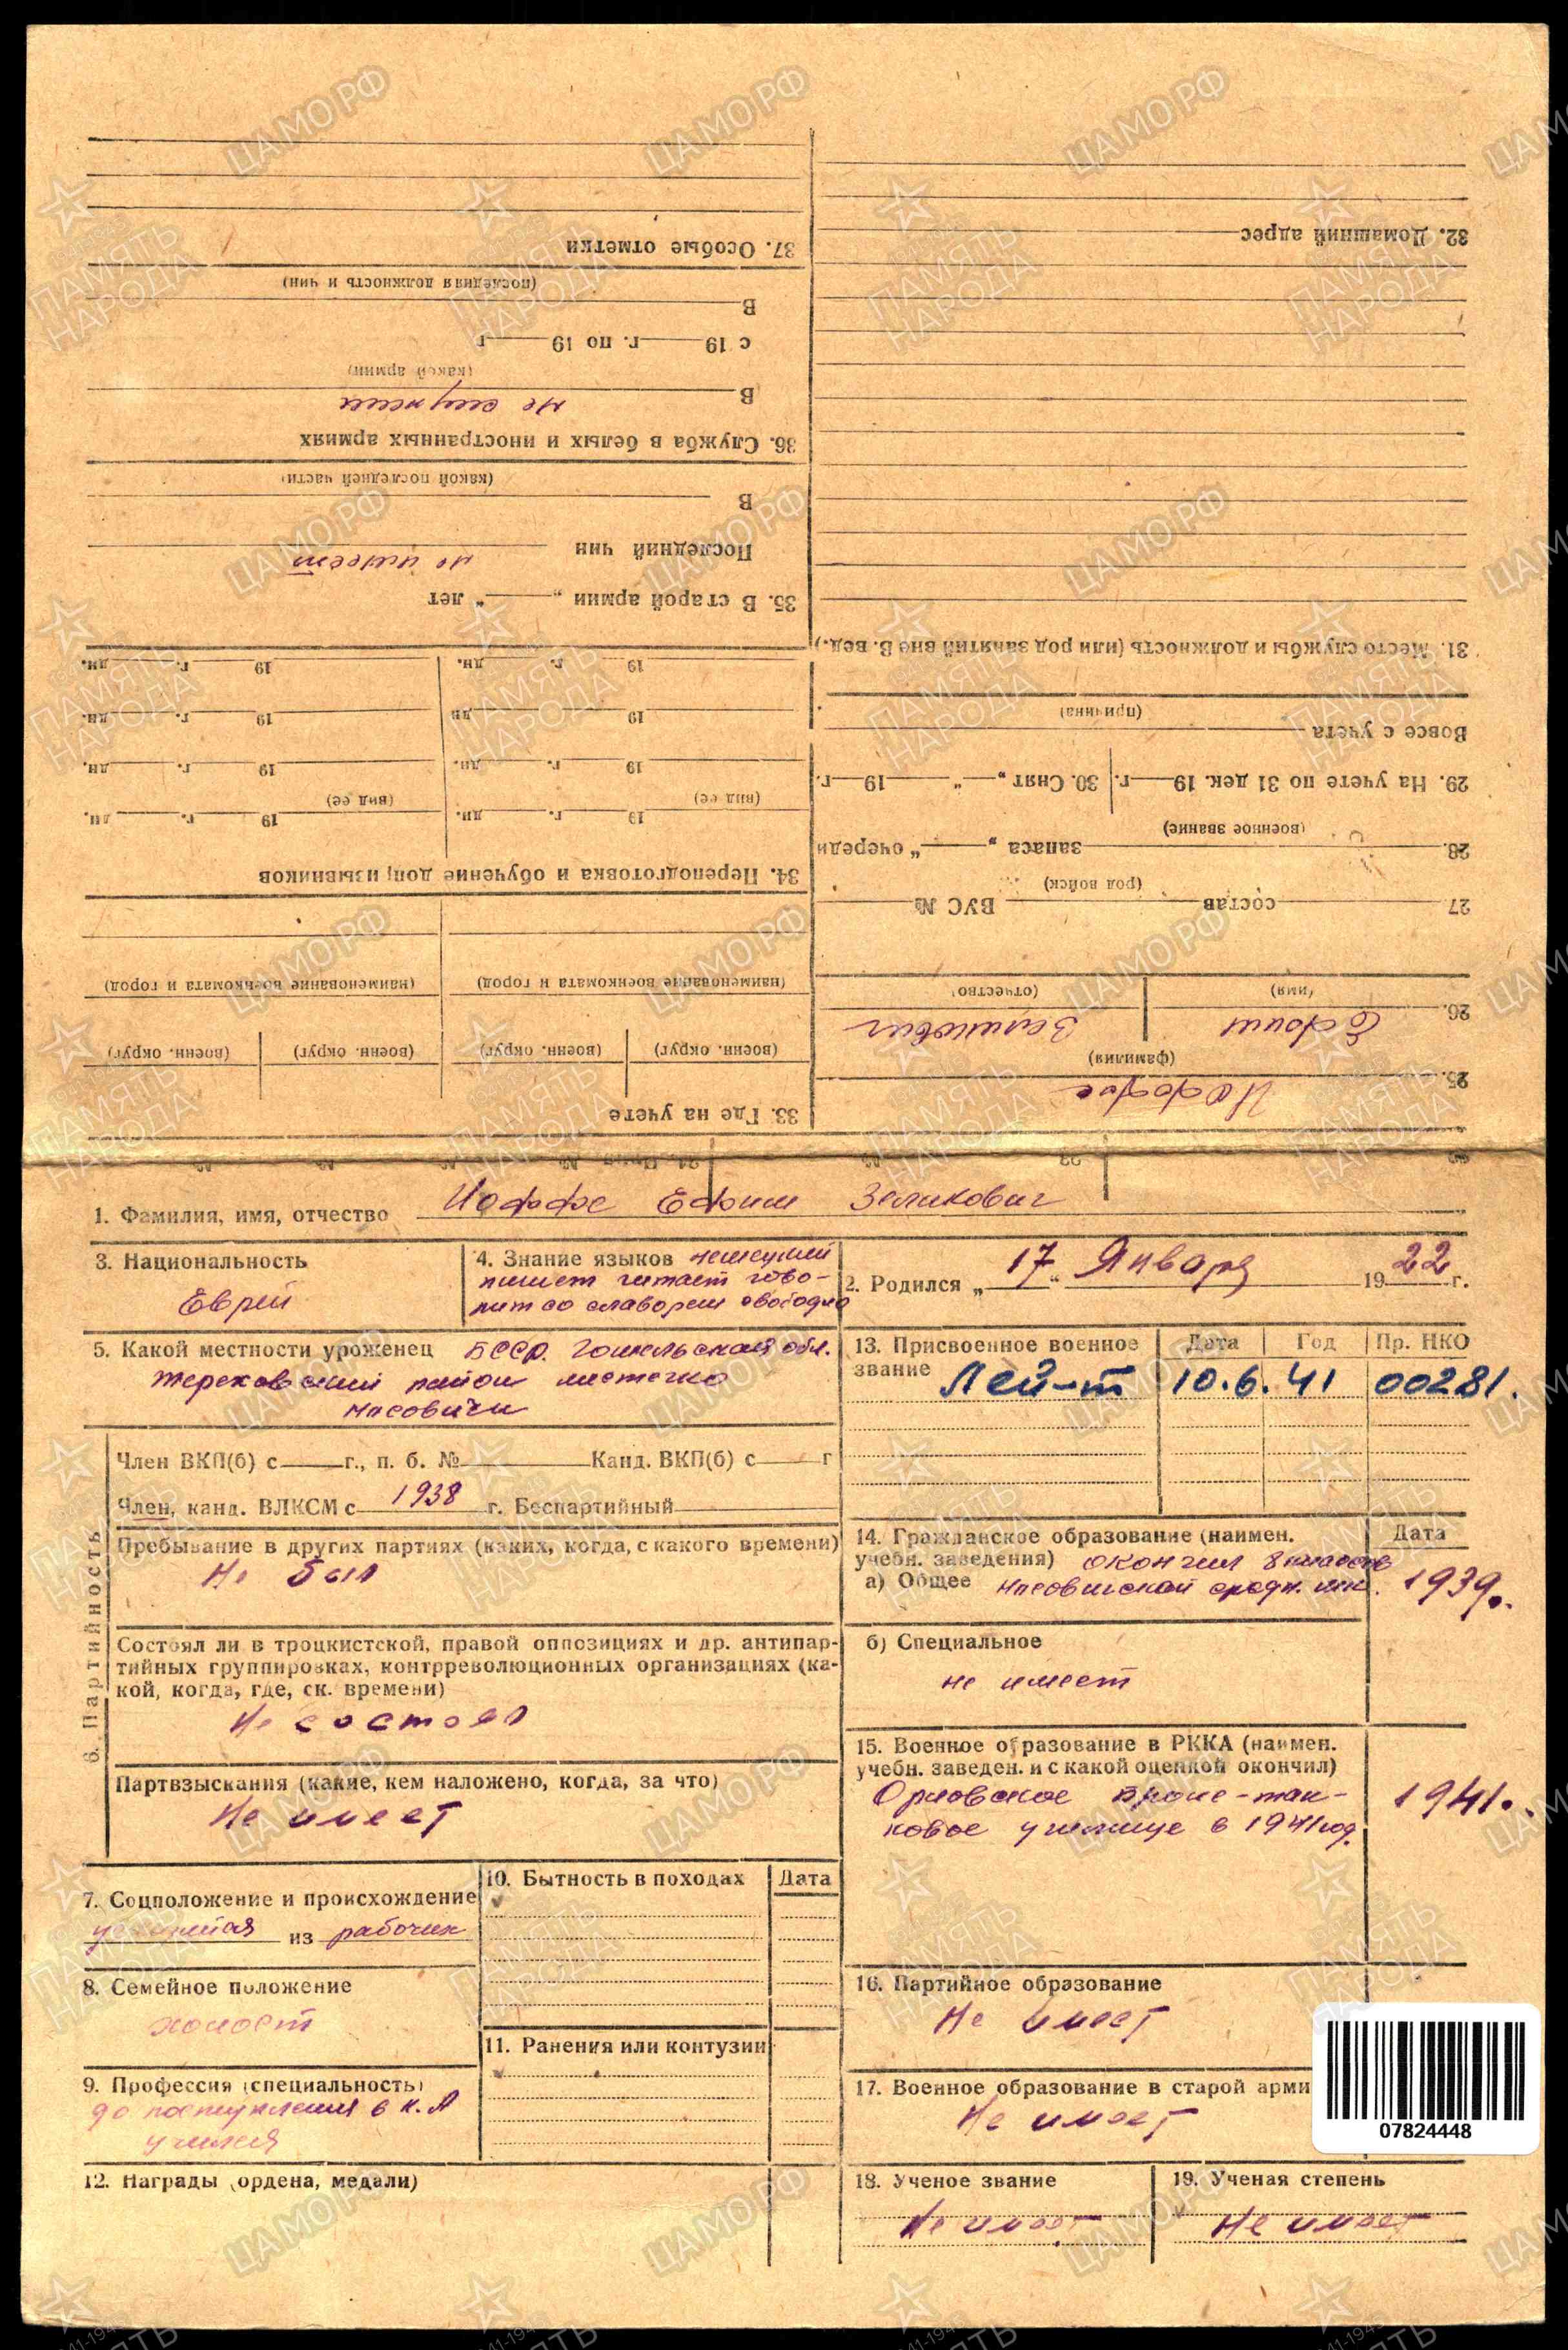 1. Фамилия, имя, отчество Иоффе Ефим Зеликович
3. Национальность
Еврей
4. Знание языков немецкий
пишет читает гово-
рит со словарем свободно
2. Родился „ 17 “ Января 19 22 г.
5. Какой местности уроженец БССР. Гомельская обл.
Тереховский район местечко
Носовичи
13. Присвоенное военное звание
Дата Год Пр. НКО
Лей-т 10.6. 41 00281.
6. Партийность
Член ВКП(б) с г., п. б. № Канд. ВКП(б) с г
Член, канд. ВЛКСМ с 1938 г. Беспартийный
Пребывание в других партиях (каких, когда, с какого времени)
Не был
Состоял ли в троцкистской, правой оппозициях и др. антипар-
тийных группировках, контрреволюционных организациях (ка-
кой, когда, где, ск. времени)
Не состоял
Партвзыскания (какие, кем наложено, когда, за что)
Не имеет
14. Гражданское образование (наимен.
учебн. заведения) окончил 8 классов
а) Общее Носовичской средн. шк.
Дата
1939.
б) Специальное
не имеет
15. Военное образование в РККА (наимен.
учебн. заведен. и с какой оценкой окончил)
Орловское броне-тан-
ковое училище в 1941 год.
1941.
7. Соцположение и происхождение
учащийся из рабочих
8. Семейное положение
холост
9. Профессия (специальность)
до поступления в К.А
учился
10. Бытность в походах Дата
11. Ранения или контузии
12. Награды (ордена, медали)
16. Партийное образование
Не имеет
17. Военное образование в старой арми
Не имеет
18. Ученое звание
Не имеет
19. Ученая степень
Не имеет
07824448
25. Иоффе
(фамилия)
26. Ефим Зеликович
(имя) (отчество)
27 состав ВУС №
(род войск)
28. запаса „ “ очереди
(военное звание)
29. На учете по 31 дек. 19 г. 30. Снят „ “ 19 г.
Вовсе с учета
(причина)
31. Место службы и должность (или род занятий вне В. вед.)
32. Домашний адрес
33. Где на учете
(военн. округ) (военн. округ) (военн. округ) (военн. округ)
(наименование военкомата и город) (наименование военкомата и город)
34. Переподготовка и обучение допризывников
19 г. дн. 19 г. дн.
(вид ее) (вид ее)
19 г. дн. 19 г. дн.
19 дн 19 г. дн.
19 г. дн. 19 г. дн.
35. В старой армии „ “ лет
Последний чин не имеет
В
(какой последней части)
36. Служба в белых и иностранных армиях
В не служил
(какой армии)
с 19 г. по 19 г
В
(последняя должность и чин)
37. Особые отметки
ЦАМО.РФ
ПАМЯТЬ
НАРОДА